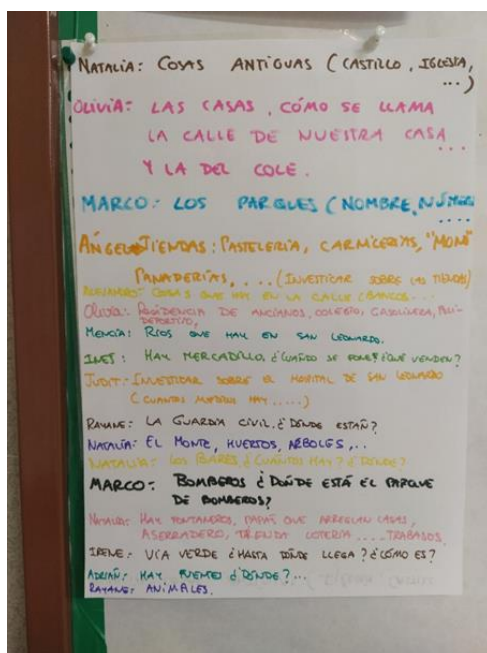 NATALIA: COSAS ANTIGUAS (CASTILLO, IGLESIA,
...)
OLIVIA: LAS CASAS, CÓMO SE LLAMA
LA CALLE DE NUESTRA CASA
...
Y LA DEL COLE.
MARCO: LOS PARQUES (NOMBRE, NÚMERO
....
ÁNGEL: TIENDAS: PASTELERÍA, CARNICERÍAS, "MONI"
PANADERÍAS, .... (INVESTIGAR SOBRE LAS TIENDAS)
ALEJANDRO: COSAS QUE HAY EN LA CALLE (BANCOS...
OLIVIA: RESIDENCIA DE ANCIANOS, COLEGIO, GASOLINERA, POLI-
DEPORTIVO,
MENCÍA: RÍOS QUE HAY EN SAN LEONARDO.
INET: HAY MERCADILLO, ¿CUÁNDO SE PONE? ¿QUÉ VENDEN?
JUDIT: INVESTIGAR SOBRE EL HOSPITAL DE SAN LEONARDO
(CUANTOS MÉDICOS HAY .....)
RAYANE: LA GUARDIA CIVIL. ¿DÓNDE ESTÁN?
NATALIA: EL MONTE, HUERTOS, ÁRBOLES,..
NATALIA: LOS BARES, ¿CUÁNTOS HAY? ¿DÓNDE?
MARCO: BOMBEROS ¿DÓNDE ESTÁ EL PARQUE
DE BOMBEROS?
NATALIA: HAY FONTANEROS, PAPÁS QUE ARREGLAN CASAS,
ASERRADERO, TIENDA LOTERÍA .... TRABAJOS.
IRENE: VÍA VERDE ¿HASTA DÓNDE LLEGA? ¿CÓMO ES?
ADRIÁN: HAY PUENTES ¿DÓNDE?...
RAYANE: ANIMALES.